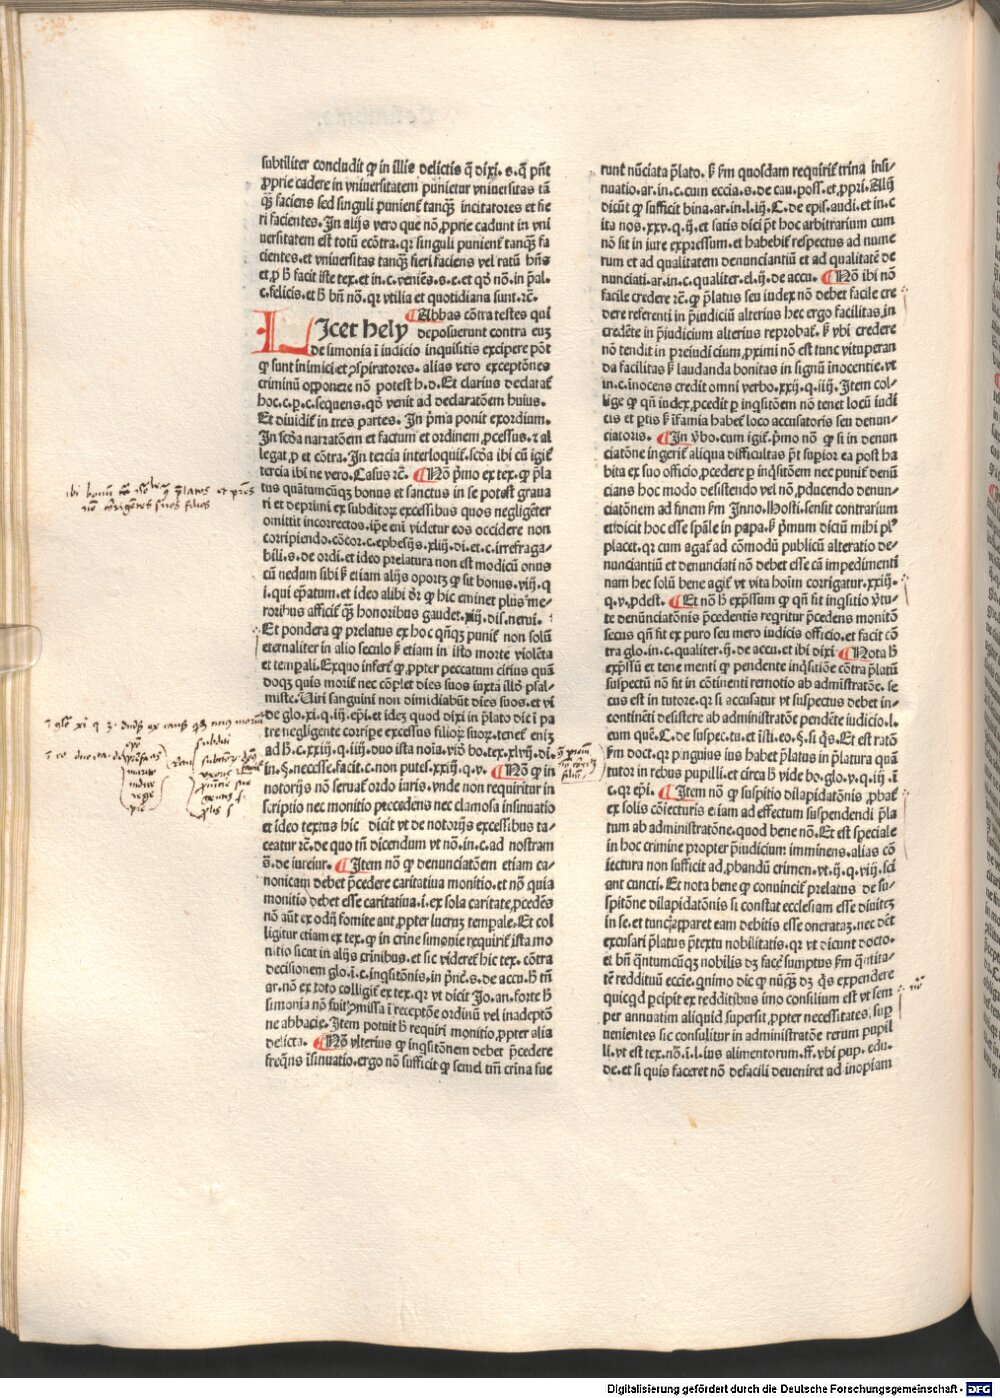 subtiliter concludit ꝙ in illis delictis q̄ dixi. s. q̄ pn̄t
ꝓprie cadere in vniuersitatem punietur vniuersitas tā
q̄ꝫ faciens sed singuli punient̄ tanꝗ̄ incitatores et fie
ri facientes. In alijs vero que nō ꝓprie cadunt in vni
uersitatem est totū ecōtra. qꝛ singuli punient̄ tanꝗ̄ fa
cientes. et vniuersitas tanꝗ̄ fieri faciens vel ratū hn̄s
et ꝓ h̄ facit iste tex. et in c. veniēs. s. e. et qḋ nō. in p̄al.
c. felicis. et h̄ bn̄ nō. qꝛ vtilia et quotidiana sunt. ꝛc̄.
¶ Abbas cōtra testes qui
LIcet hely deposuerunt contra euꝫ
de simonia ī iudicio inquisitis excipere pōt
ꝙ sunt inimici et ꝯspiratores. alias vero exceptōnes
criminū opponere nō potest h. d. Et clarius declarat̄
hoc. c. p. c. sequens. qḋ venit ad declaratōem huius.
Et diuidit̄ in tres partes. In p̄ma ponit exordium.
In scḋa narratōem et factum et ordinem ꝓcessus. ⁊ al
legat̄ ꝓ et cōtra. In tercia interloquit̄. scḋa ibi cū igit̄
tercia ibi ne vero. Casus ꝛc̄. ¶ Nō p̄mo ex tex. ꝙ p̄la
tus quātumcūqꝫ bonus et sanctus in se potest graua
ri et deprimi ex subditoꝝ excessibus quos negligēter
omittit incorrectos. ip̄e eni videtur eos occidere non
corripiendo. cōcor. c. ephesijs. xliij. di. et. c. irrefraga-
bili. s. de ordi. et ideo prelatura non est modicū onus
cū nedum sibi s̄ etiam alijs oportꝫ ꝙ sit bonus. viij. q
i. qui ep̄atum. et ideo alibi dr̄ ꝙ hic eminet plus me-
roribus afficit̄ q̄ꝫ honoribus gaudet. xiij. dis. nerui.
Et pondera ꝙ prelatus ex hoc qn̄qꝫ punit̄ non solū
eternaliter in alio seculo s̄ etiam in isto morte violēta
et tempali. Exquo infert̄ ꝙ ꝓpter peccatum citius quā
doqꝫ quis morit̄ nec cōplet dies suos iuxta illḋ psal-
miste. Viri sanguinū non dimidiabūt dies suos. et vi
de glo. xi. q. iij. ep̄i. et idē quod dixi in p̄lato dic ī pa
tre negligente corripe excessus filioꝝ suoꝝ. tenet̄ eniꝫ
ad h̄. c. xxiij. q. iiij. duo ista noīa. viō bo. tex. xlvij. di.
in. §. necesse. facit. c. non putes. xxiij. q. v. ¶ Nō ꝙ in
notorijs nō seruat̄ ordo iuris. vnde non requiritur in
scriptio nec monitio precedens nec clamosa insinuatio
et ideo textus hic dicit vt de notorijs excessibus ta-
ceatur ꝛc̄. de quo tn̄ dicendum vt nō. in. c. ad nostram
s. de iureiur. ¶ Item nō ꝙ denunciatōem etiam ca-
nonicam debet p̄cedere caritatiua monitio. et nō quia
monitio debet esse caritatiua. i. ex sola caritate ꝓcedēs
nō aūt ex odij fomite aut ꝓpter lucrꝫ tempale. Et col
ligitur etiam ex tex. ꝙ in crīne simonie requirit̄ ista mo
nitio sicut in alijs crīnibus. et sic videret̄ hic tex. cōtra
decisionem glo. i. c. inqsitōnis. in prīc. s. de accu. h̄ tn̄
ar. nō ex toto colligit̄ ex tex. qꝛ vt dicit Jo. an. forte h̄
simonia nō fuit ꝯmissa ī receptōe ordinū vel inadeptō
ne abbacie. Item potuit h̄ requiri monitio ꝓpter alia
delicta. ¶ Nō vlterius ꝙ inqsitōnem debet p̄cedere
freq̄ns īsinuatio. ergo nō sufficit ꝙ semel tm̄ crīna fue
runt nūciata p̄lato. s̄ fm quosdam requirit̄ trina insi-
nuatio. ar. in. c. cum eccīa. s. de cau. poss. et ꝓpri. Alij
dicūt ꝙ sufficit bina. ar. in. l. ij. C. de epis. audi. et in. c
ita nos. xxv. q. ij. et satis dici p̄t hoc arbitrarium cum
nō sit in iure expressum. et habebit̄ respectus ad nume
rum et ad qualitatem denunciantiū et ad qualitatē de
nunciati. ar. in. c. qualiter. el. ij. de accu. ¶ Nō ibi nō
facile credere ꝛc̄. ꝙ p̄latus seu iudex nō debet facile cre
dere referenti in p̄iudiciū alterius hec ergo facilitas in
credēte in p̄iudicium alterius reprobat̄. s̄ vbi credere
nō tendit in preiudicium ꝓximi nō est tunc vituperan
da facilitas s̄ laudanda bonitas in signū inocentie. vt
in. c. inocens credit omni verbo. xxij. q. iiij. Item col-
lige ꝙ qn̄ iudex ꝓcedit p inqsitōem nō tenet locū iudi
cis et ptis s̄ īfamia habet̄ loco accusatoris seu denun-
ciatoris. ¶ In ṽbo. cum igit̄. p̄mo nō ꝙ si in denun
ciatōne ingerit̄ aliqua difficultas p̄t superior ea post ha
bita ex suo officio ꝓcedere p inqsitōem nec punit̄ denū
cians hoc modo desistendo vel nō ꝓducendo denun-
ciatōnem ad finem fm Inno. Hosti. sensit contrarium
et dicit hoc esse sp̄ale in papa. s̄ p̄mum dictū mihi pl⁹
placet. qꝛ cum agat̄ ad cōmodū publicū alteratio de-
nunciantiū et denunciati nō debet esse cā impedimenti
nam hec solū bene agit̄ vt vita hoīm corrigatur. xxiij.
q. v. ꝓdest. ¶ Et nō h̄ exp̄ssum ꝙ qn̄ fit inqsitio ṽtu-
te denunciatōnis p̄cedentis reqritur p̄cedens monitō
secus qn̄ fit ex puro seu mero iudicis officio. et facit cō
tra glo. in. c. qualiter. ij. de accu. et ibi dixi ¶ Nota h̄
exp̄ssū et tene menti ꝙ pendente inqsitiōe cōtra p̄latū
suspectū nō fit in cōtinenti remotio ab administratōe. se
cus est in tutore. qꝛ si accusatur vt suspectus debet in-
continēti desistere ab administratōe pendēte iudicio. l.
eum quē. C. de suspec. tu. et īsti. eo. §. si q̄s. Et est ratō
fm doct. qꝛ pinguius ius habet p̄latus in p̄latura quā
tutor in rebus pupilli. et circa h̄ vide bo. glo. v. q. iij. ī
c. qꝛ ep̄i. ¶ Item nō ꝙ suspitio dilapidatōnis ꝓbat̄
ex solis cōiecturis etiam ad effectum suspendendi p̄la
tum ab administratōne. quod bene nō. Et est speciale
in hoc crimine propter p̄iudicium imminens. alias cō
iectura non sufficit ad ꝓbandū crimen. vt. ij. q. viij. sci
ant cuncti. Et nota bene ꝙ conuincit̄ prelatus de su-
spitōne dilapidatōnis si constat ecclesiam esse diuitem
in se. et tunc apparet eam debitis esse oneratam. nec dēt
excusari p̄latus p̄textu nobilitatis. qꝛ vt dicunt docto.
et bn̄ qntumcūqꝫ nobilis dꝫ facē sumptus fm qntita-
tē redituū eccīe. qnimo dic ꝙ nūqꝫ dꝫ q̄s expendere
quicqd pcipit ex redditibus imo consilium est vt sem
per annuatim aliquid supersit ꝓpter necessitates sup
uenientes sic consulitur in administratōe rerum pupil
li. vt est tex. nō. ī. l. ius alimentorum. ff. vbi pup. edu.
de. et si quis faceret nō defacili deueniret ad inopiam
Digitalisierung gefördert durch die Deutsche Forschungsgemeinschaft - DFG